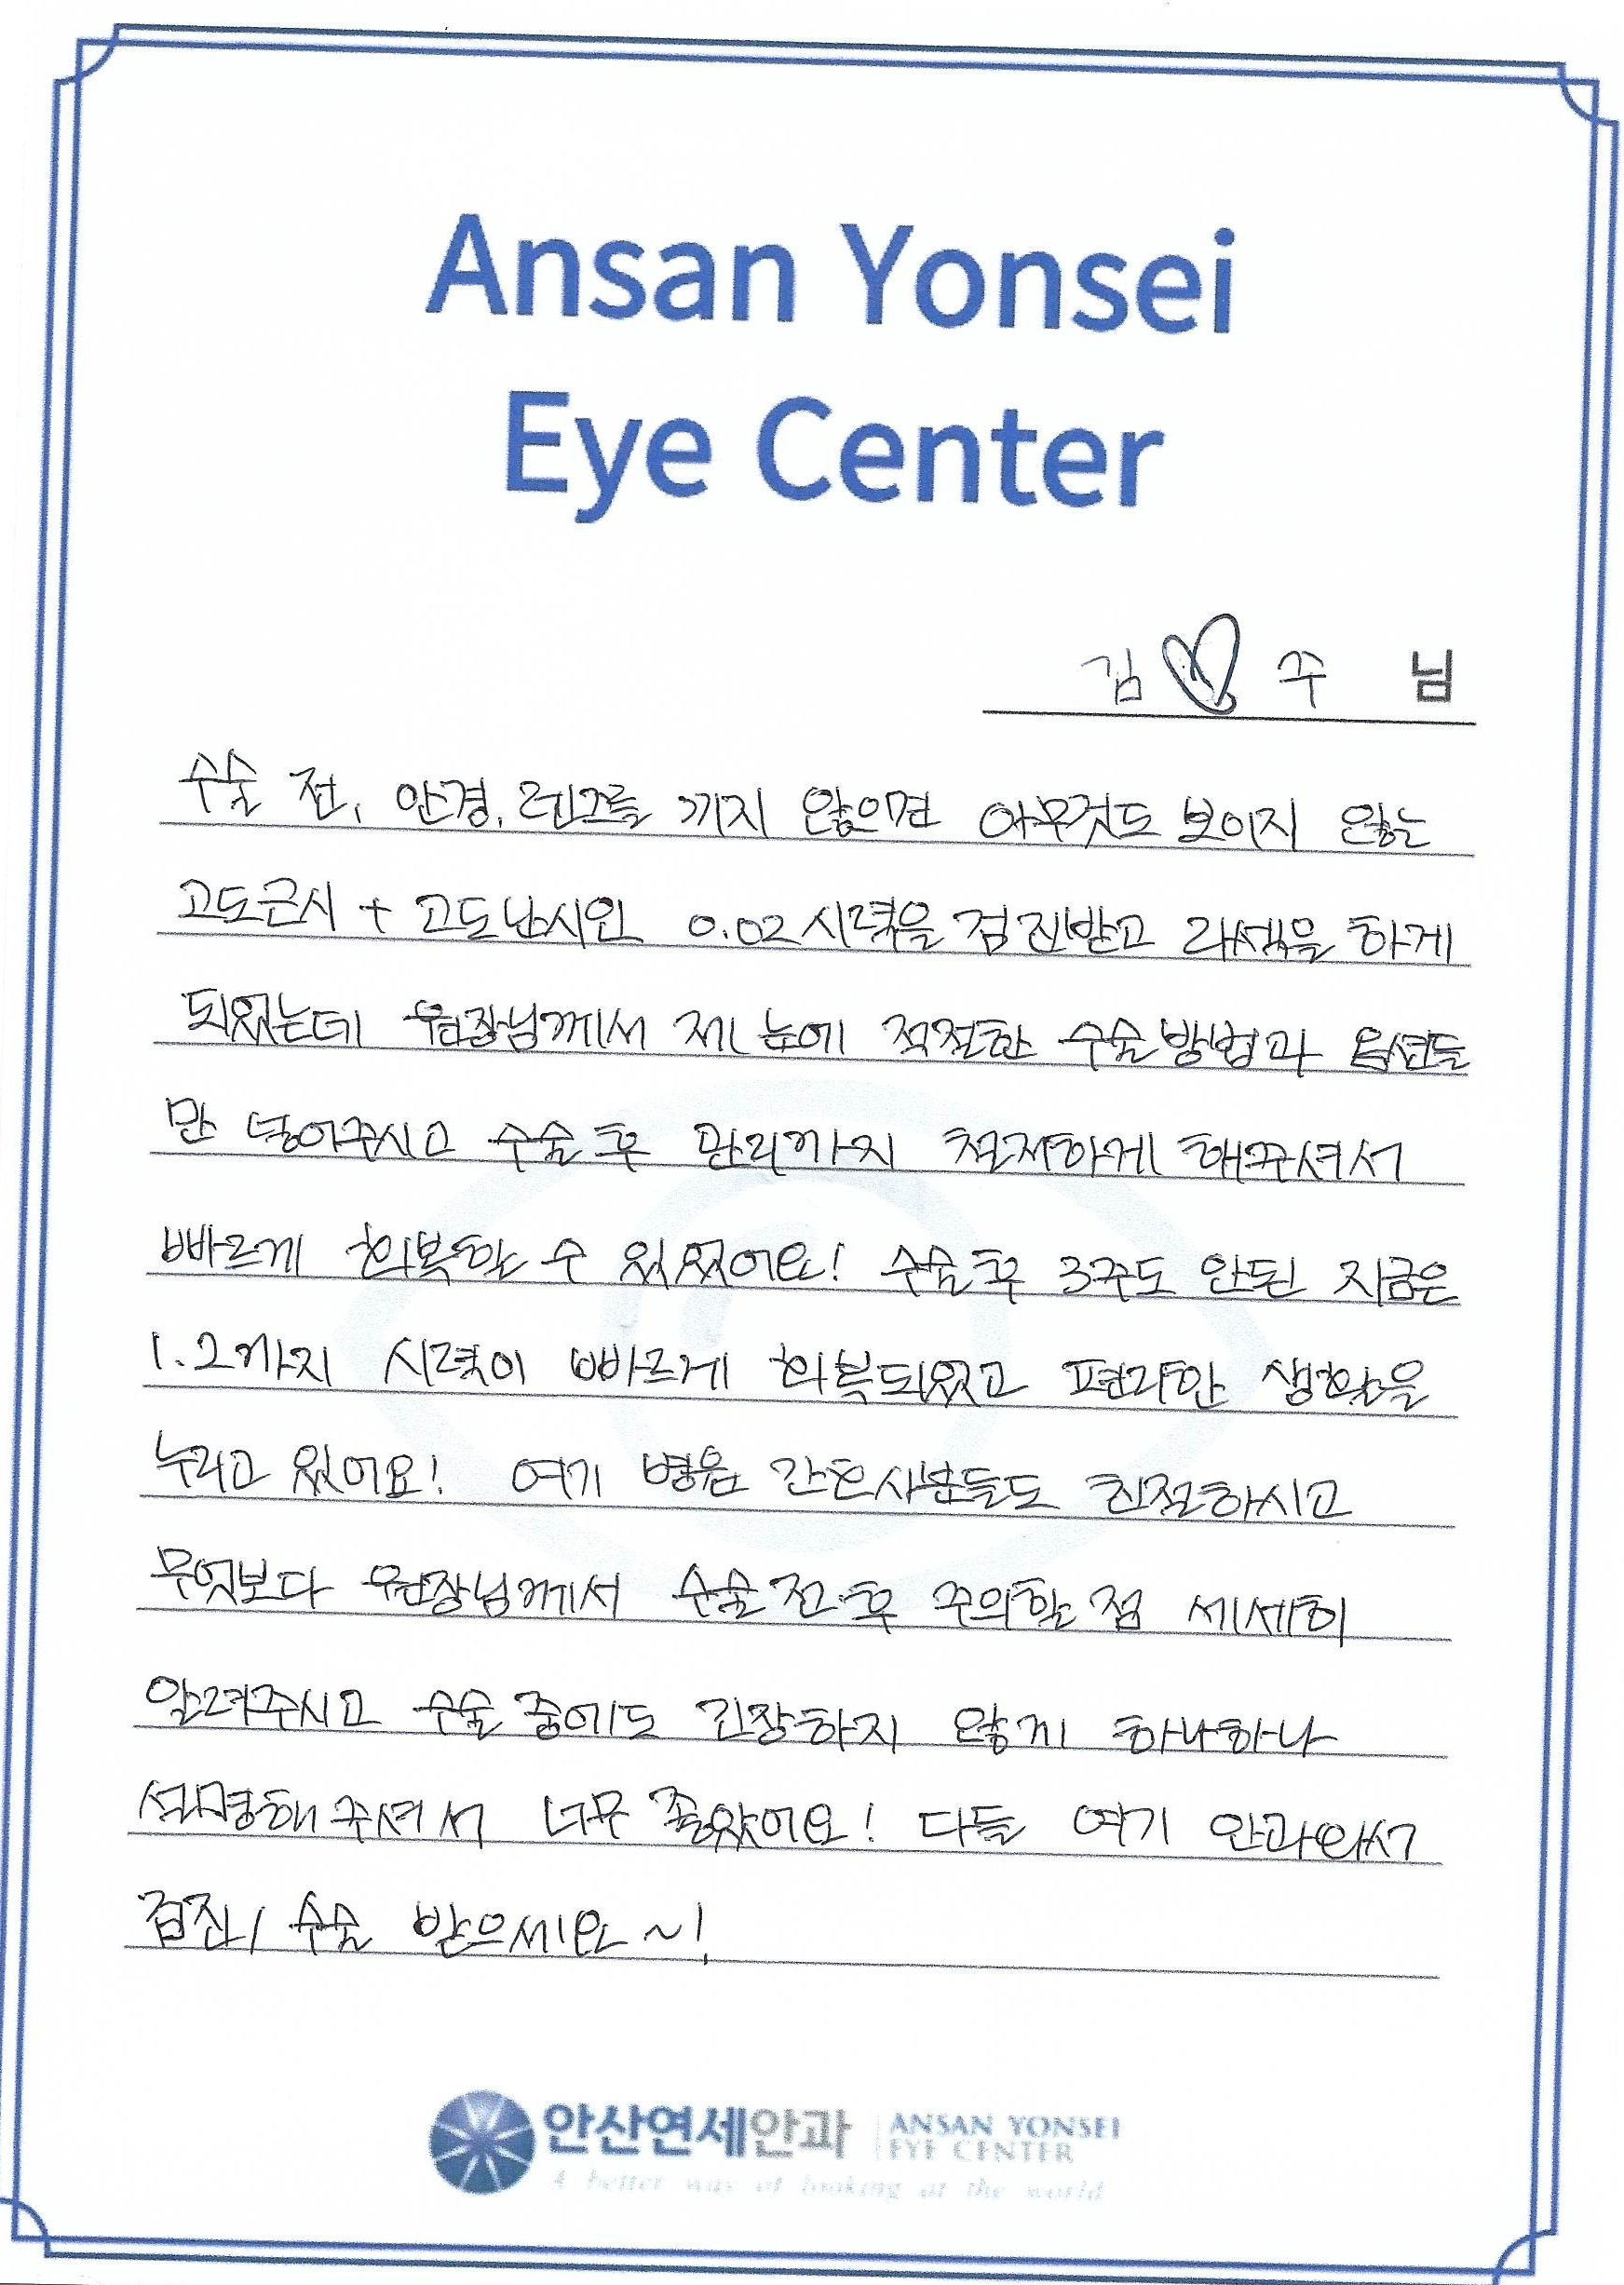 Ansan Yonsei
Eye Center
김 주 님
수술 전, 안경, 렌즈를 끼지 않으면 아무것도 보이지 않는
고도근시 + 고도난시인 0.02 시력을 검진받고 라섹을 하게
되었는데 원장님께서 제 눈에 적절한 수술방법과 옵션들
만 넣어주시고 수술 후 관리까지 철저하게 해주셔서
빠르게 회복할 수 있었어요! 수술 후 3주도 안된 지금은
1.2까지 시력이 빠르게 회복되었고 편리한 생활을
누리고 있어요! 여기 병원 간호사분들도 친절하시고
무엇보다 원장님께서 수술 전·후 주의할 점 세세히
알려주시고 수술 중에도 긴장하지 않게 하나하나
설명해 주셔서 너무 좋았어요! 다들 여기 안과와서
검진/ 수술 받으세요~!
안산연세안과 ANSAN YONSEI
EYE CENTER
A better way of looking at the world